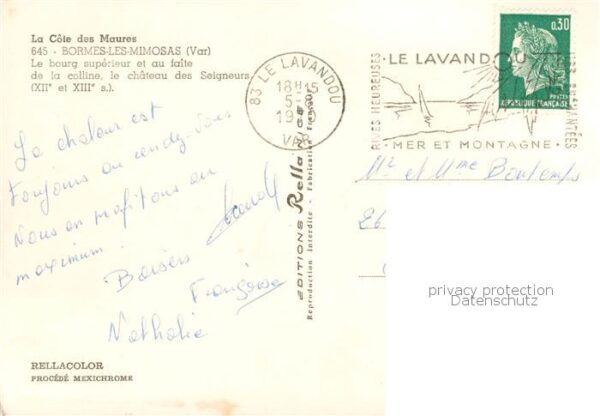 La Côte des Maures
645 - BORMES-LES-MIMOSAS (Var)
Le bourg supérieur et au faîte
de la colline, le château des Seigneurs
(XIIe et XIIIe s.).
La chaleur est
toujours au rendez-vous
Nous en profitons au
maximum.
Baisers
Françoise
Nathalie
RELLACOLOR
PROCÉDÉ MEXICHROME
EDITIONS Rella
Reproduction Interdite - Fabrication Française
83 LE LAVANDOU
18H15
5-
19
VAR
LE LAVANDOU
RIVES HEUREUSES
MER ET MONTAGNE
0.30
POSTES
REPUBLIQUE FRANÇAISE
Mr et Mme Bontemps
26
privacy protection
Datenschutz